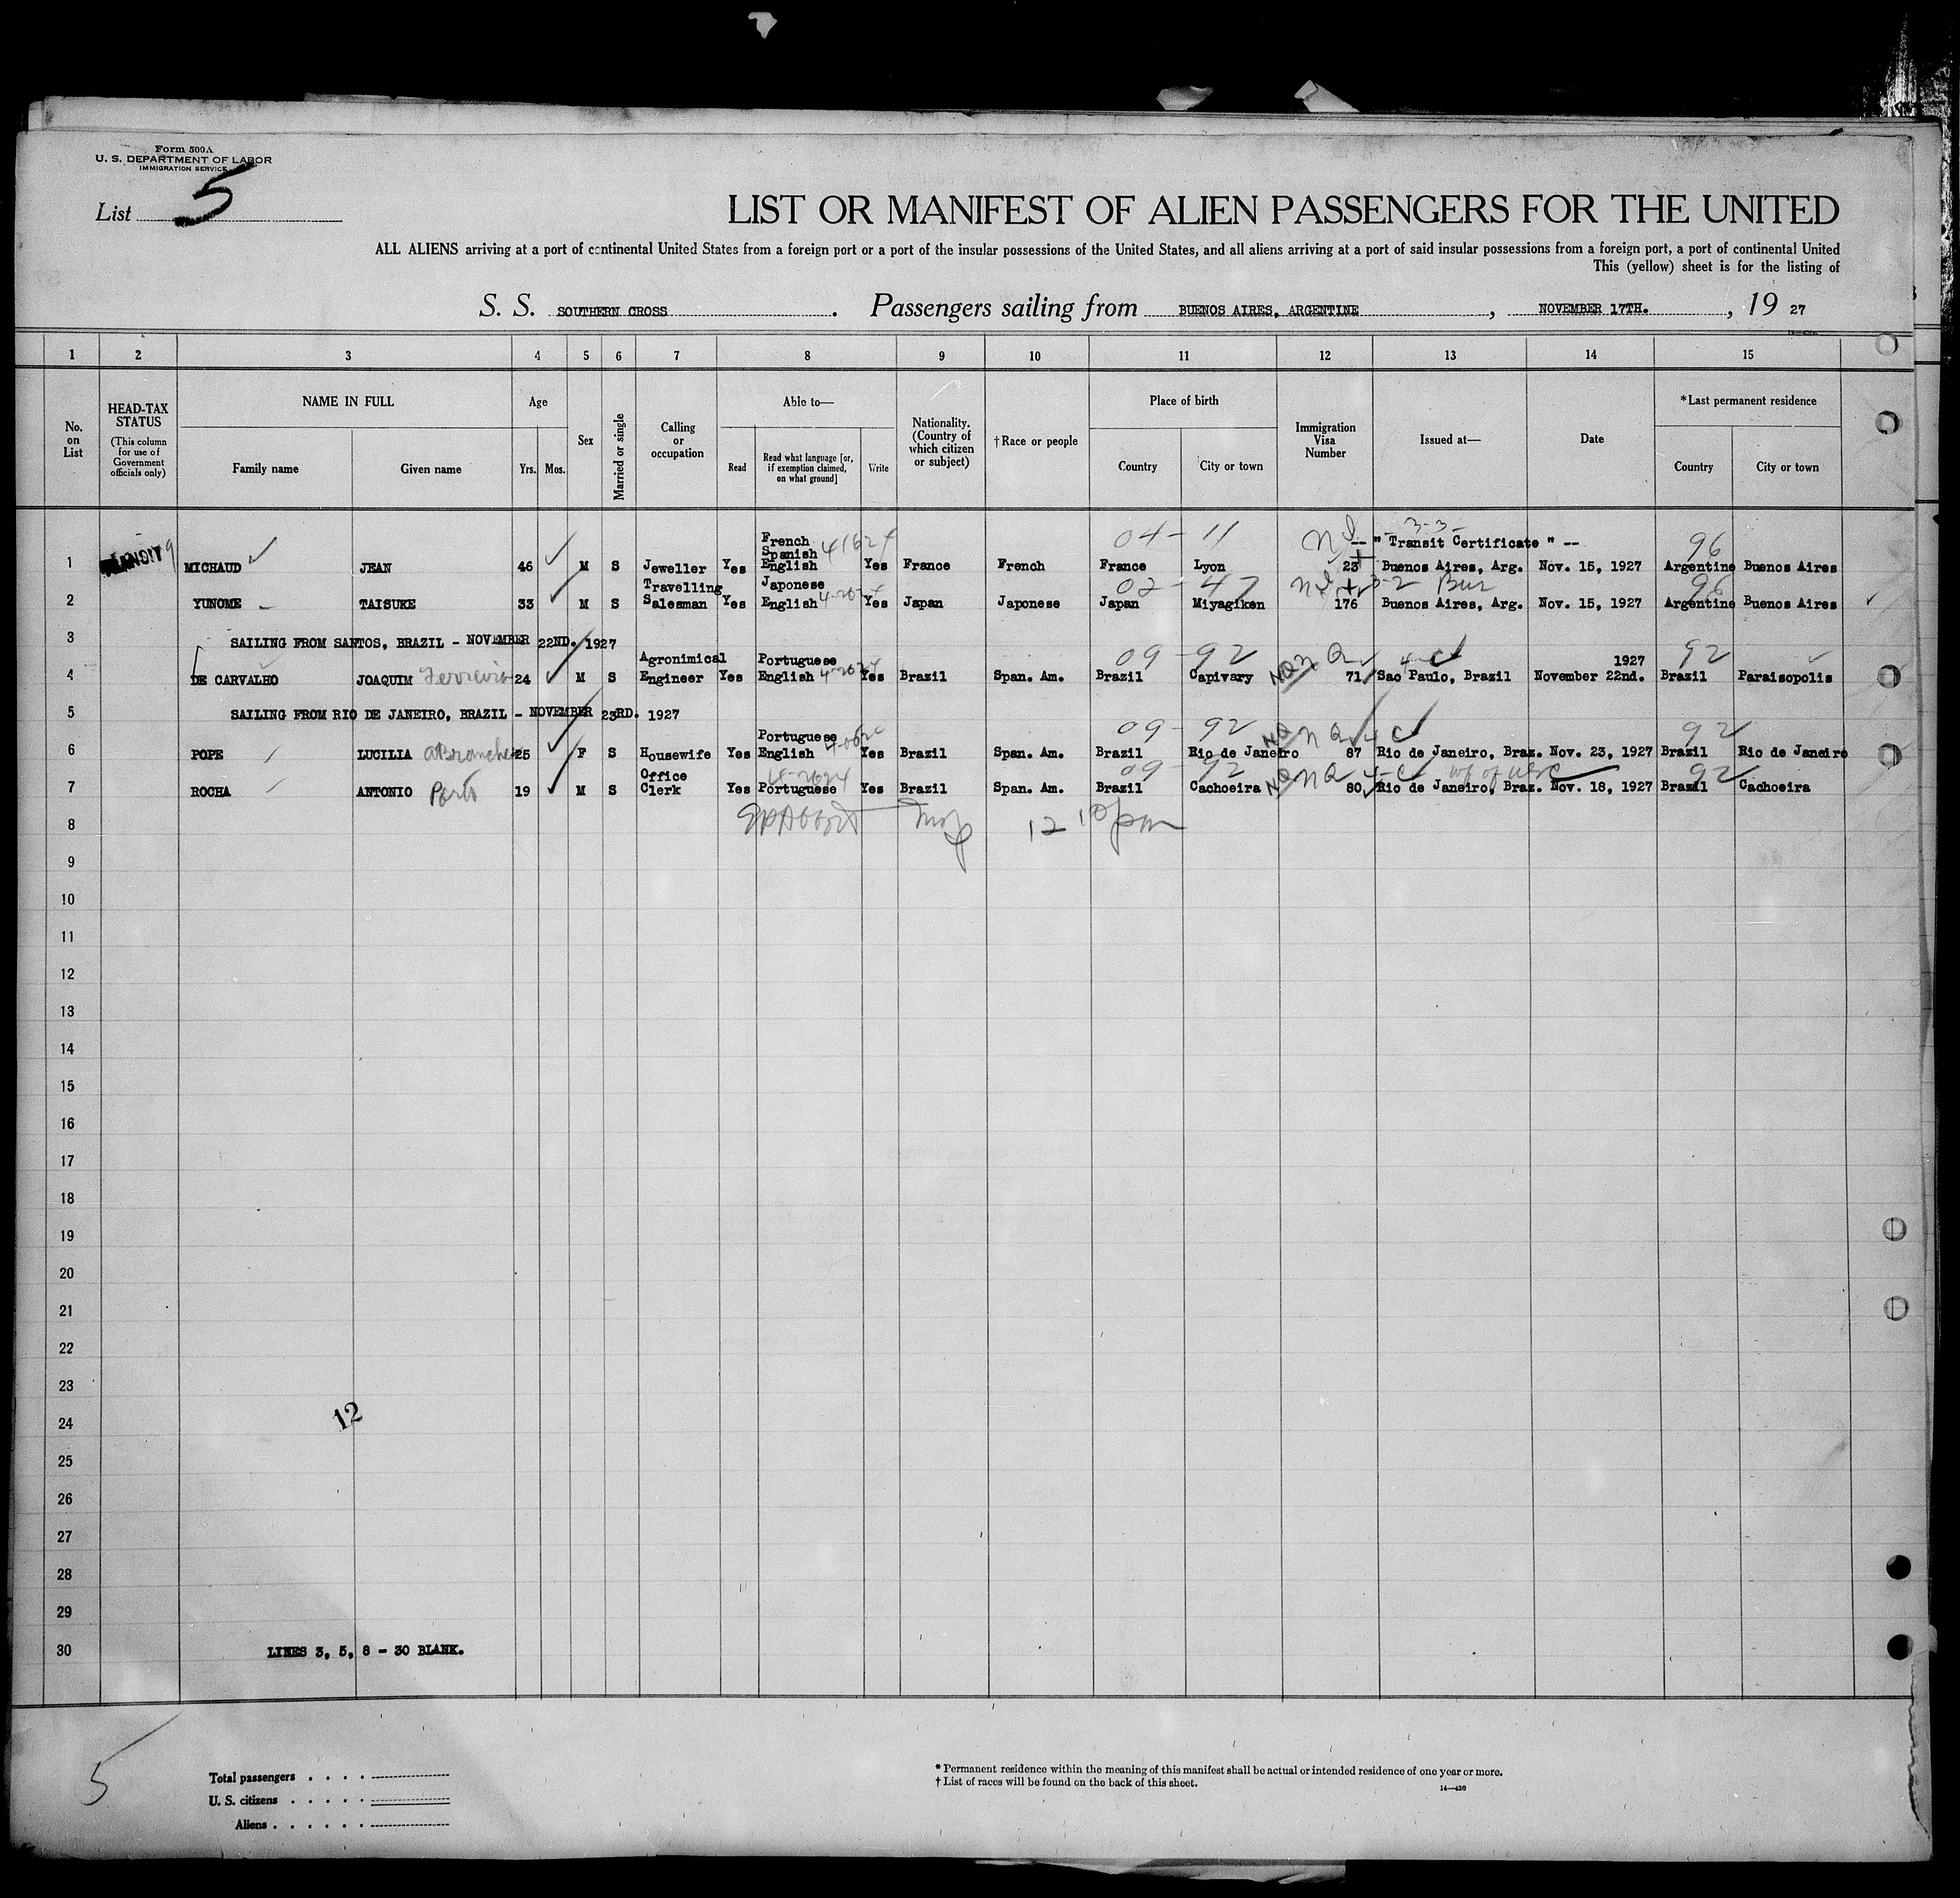 Form 500A
U. S. DEPARTMENT OF LABOR
IMMIGRATION SERVICE
List 5
LIST OR MANIFEST OF ALIEN PASSENGERS FOR THE UNITED
ALL ALIENS arriving at a port of continental United States from a foreign port or a port of the insular possessions of the United States, and all aliens arriving at a port of said insular possessions from a foreign port, a port of continental United
This (yellow) sheet is for the listing of
S. S. SOUTHERN CROSS. Passengers sailing from BUENOS AIRES, ARGENTINE, NOVEMBER 17TH., 19 27
1 2 3 4 5 6 7 8 9 10 11 12 13 14 15
No. on List
HEAD-TAX STATUS (This column for use of Government officials only)
NAME IN FULL Family name Given name
Age Yrs. Mos.
Sex
Married or single
Calling or occupation
Able to— Read Read what language [or, if exemption claimed, on what ground] Write
Nationality. (Country of which citizen or subject)
†Race or people
Place of birth Country City or town
Immigration Visa Number
Issued at—
Date
*Last permanent residence Country City or town
04 - 11 3-3- 96
-- " Transit Certificate " --
1 MICHAUD JEAN 46 M S Jeweller Yes French Spanish English Yes France French France Lyon 23 Buenos Aires, Arg. Nov. 15, 1927 Argentine Buenos Aires
02 - 47 3-2 96
2 YUNOME TAISUKE 33 M S Travelling Salesman Yes Japonese English Yes Japan Japonese Japan Miyagiken 176 Buenos Aires, Arg. Nov. 15, 1927 Argentine Buenos Aires
3 SAILING FROM SANTOS, BRAZIL - NOVEMBER 22ND. 1927
09 - 92 NQ 4-C 92
4 DE CARVALHO JOAQUIM Ferreira 24 M S Agronimical Engineer Yes Portuguese English Yes Brazil Span. Am. Brazil Capivary 71 Sao Paulo, Brazil November 22nd. 1927 Brazil Paraisopolis
5 SAILING FROM RIO DE JANEIRO, BRAZIL - NOVEMBER 23RD. 1927
09 - 92 NQ 4 C 92
6 POPE LUCILIA 25 F S Housewife Yes Portuguese English Yes Brazil Span. Am. Brazil Rio de Janeiro 87 Rio de Janeiro, Braz. Nov. 23, 1927 Brazil Rio de Janeiro
09 - 92 NQ 4-C 92
7 ROCHA ANTONIO Porto 19 M S Office Clerk Yes Portuguese Yes Brazil Span. Am. Brazil Cachoeira 80 Rio de Janeiro, Braz. Nov. 18, 1927 Brazil Cachoeira
8 12 10 pm
9
10
11
12
13
14
15
16
17
18
19
20
21
22
23
24 12
25
26
27
28
29
30 LINES 3, 5, 8 - 30 BLANK.
5
Total passengers
U. S. citizens
Aliens
* Permanent residence within the meaning of this manifest shall be actual or intended residence of one year or more.
† List of races will be found on the back of this sheet.
14—430